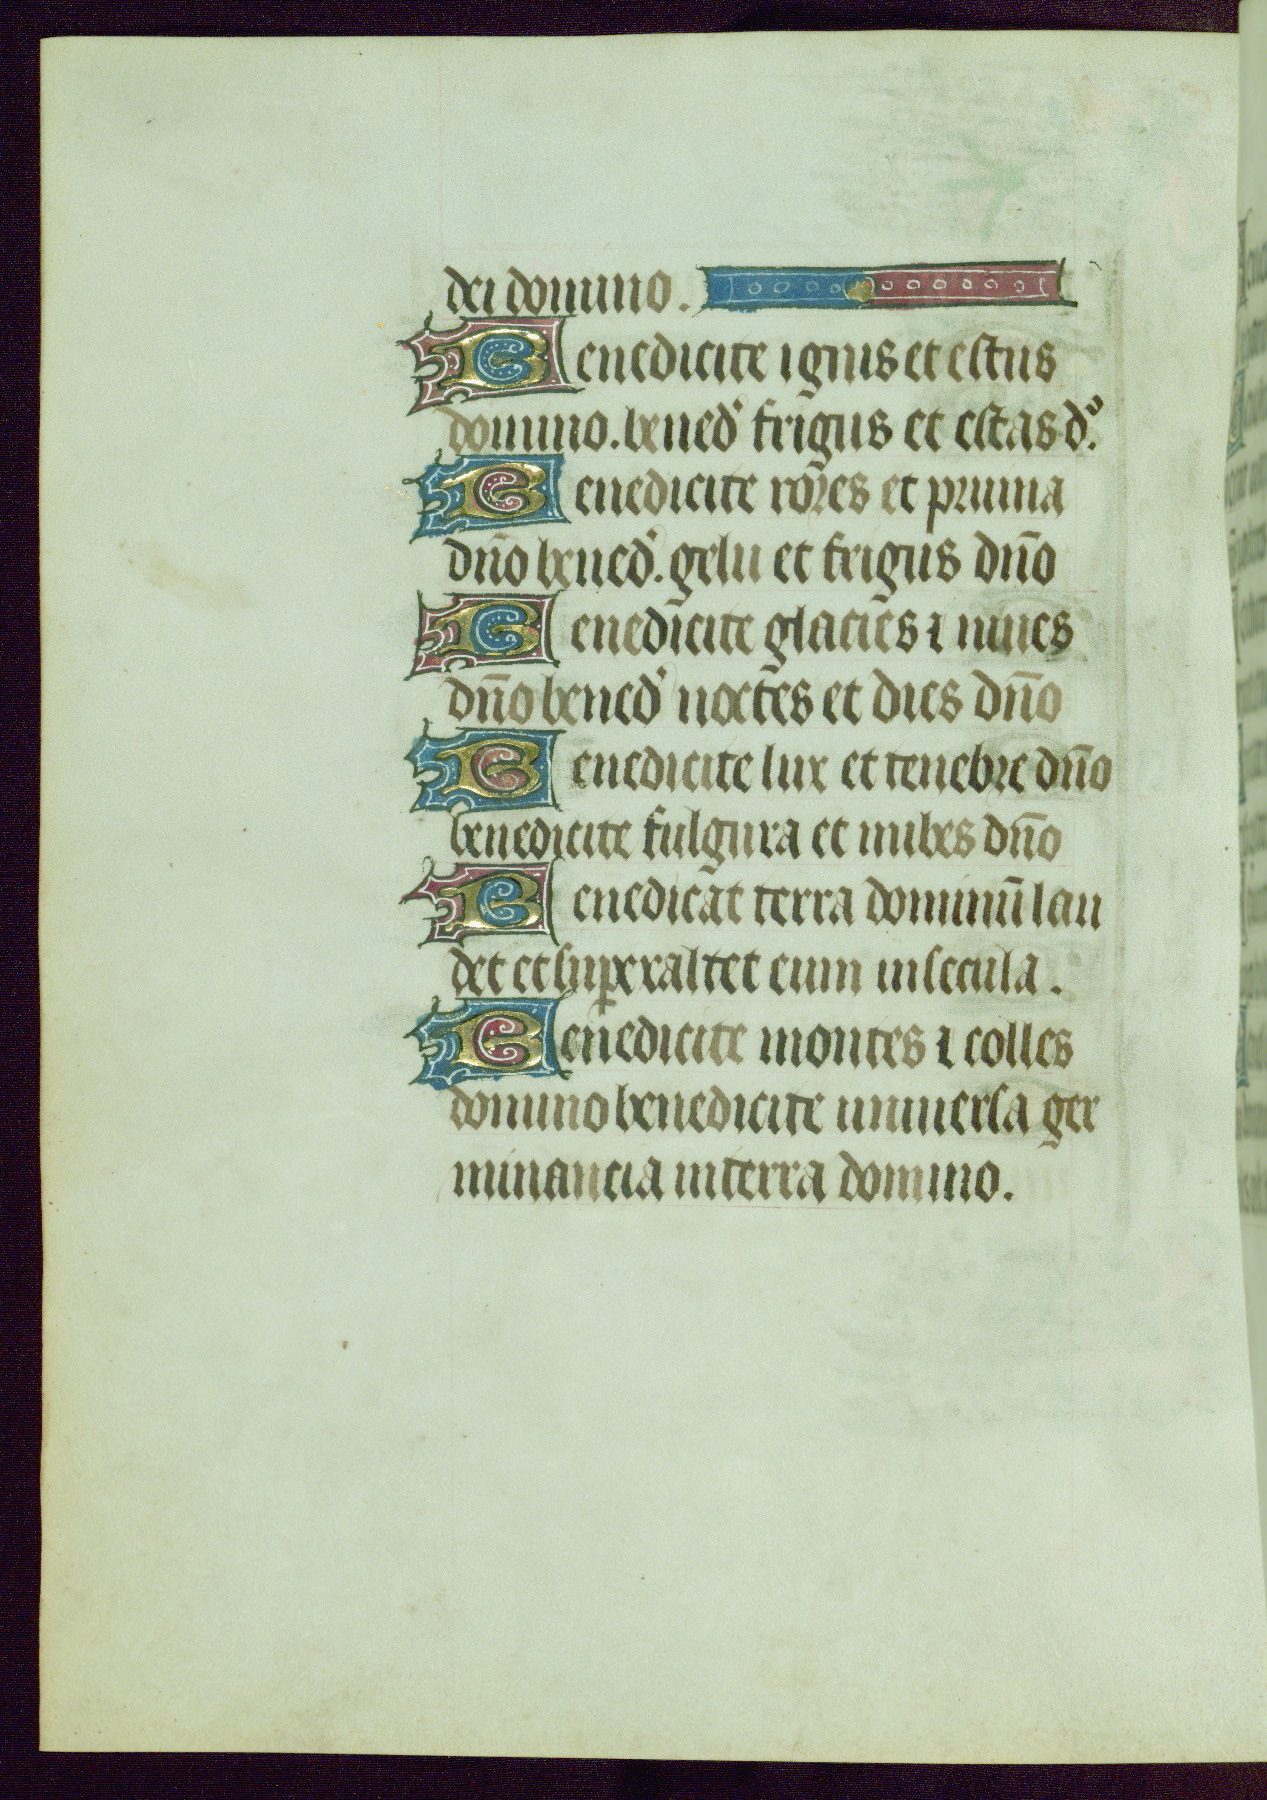 dei domino.
Benedicite ignis et estus
domino. bened' frigus et estas d.º
Benedicite rores et pruina
dn̄o bened'. gelu et frigus dn̄o
Benedicite glacies ⁊ niues
dn̄o bened' noctes et dies dn̄o
Benedicite lux et tenebre dn̄o
benedicite fulgura et nubes dn̄o
Benedicat terra dominū lau
det et suꝑexaltet eum in secula.
Benedicite montes ⁊ colles
domino benedicite uniuersa ger
minancia in terra domino.